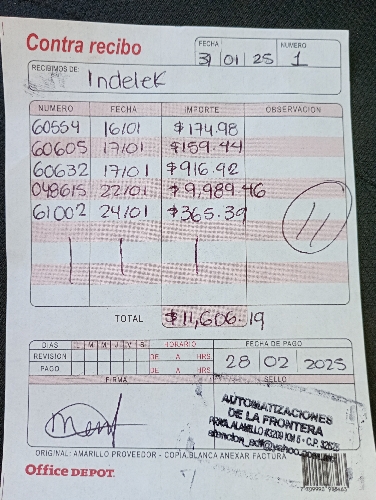 Contra recibo
FECHA NUMERO
31 01 25 1
RECIBIMOS DE:
Indelek
NUMERO FECHA IMPORTE OBSERVACION
60554 16/01 $174.98
60605 17/01 $159.44
60632 17/01 $916.92
048615 22/01 $9,989.46
61002 24/01 $365.39
11
TOTAL $11,606.19
DIAS L M M J V S HORARIO FECHA DE PAGO
REVISION DE A HRS. 28 02 2025
PAGO DE A HRS.
FIRMA SELLO
AUTOMATIZACIONES
DE LA FRONTERA
ORIGINAL: AMARILLO PROVEEDOR - COPIA BLANCA ANEXAR FACTURA
Office DEPOT.